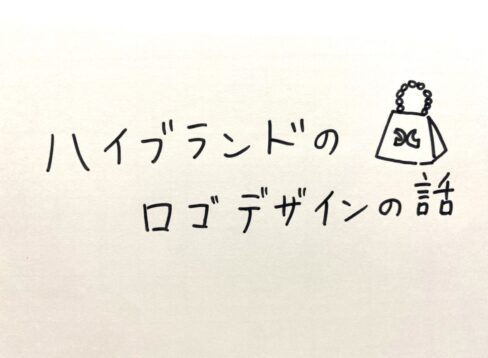 ハイブランドの
ロゴデザインの話